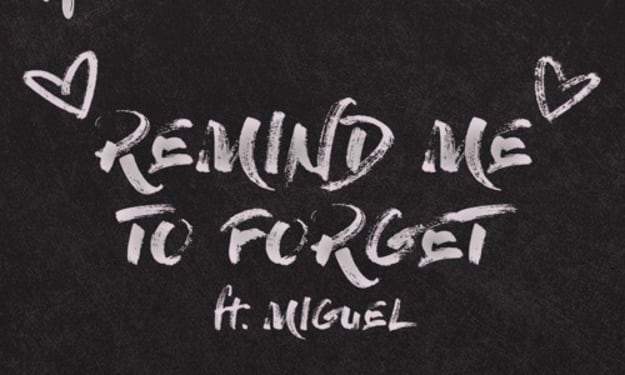 REMIND ME
TO FORGET
ft. MIGUEL